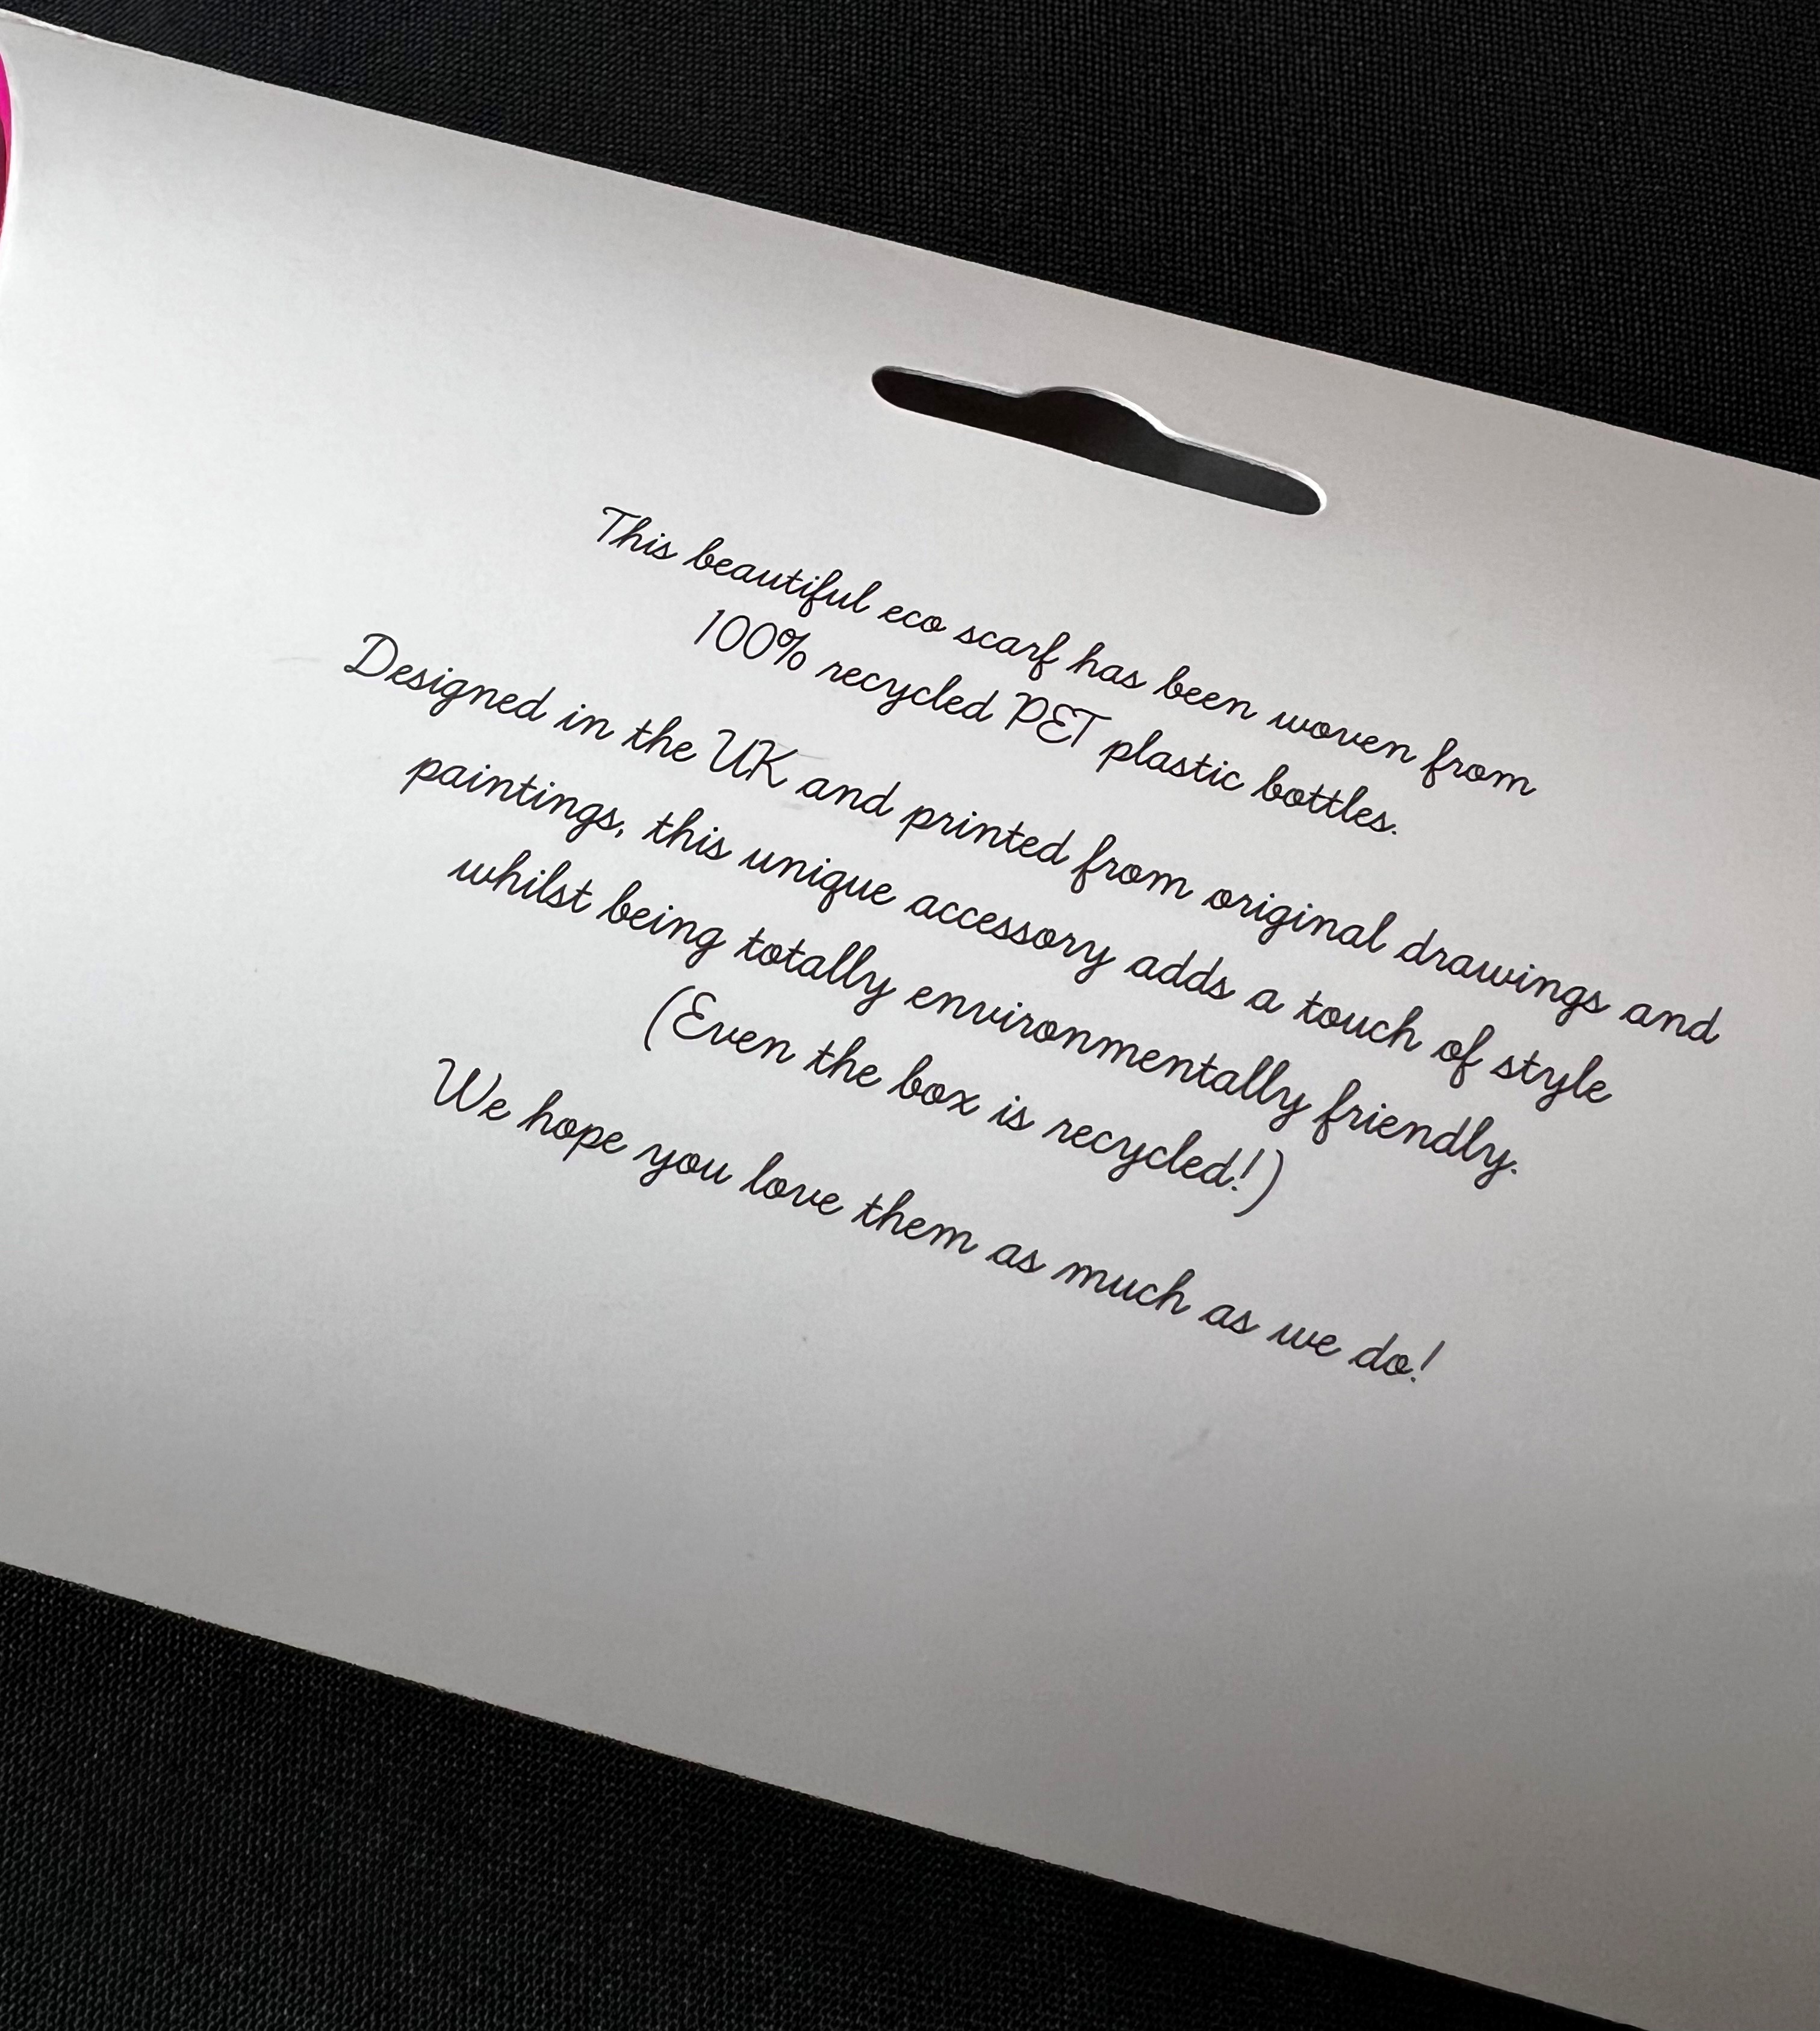 This beautiful eco scarf has been woven from
100% recycled PET plastic bottles.
Designed in the UK and printed from original drawings and
paintings, this unique accessory adds a touch of style
whilst being totally environmentally friendly.
(Even the box is recycled!)
We hope you love them as much as we do!